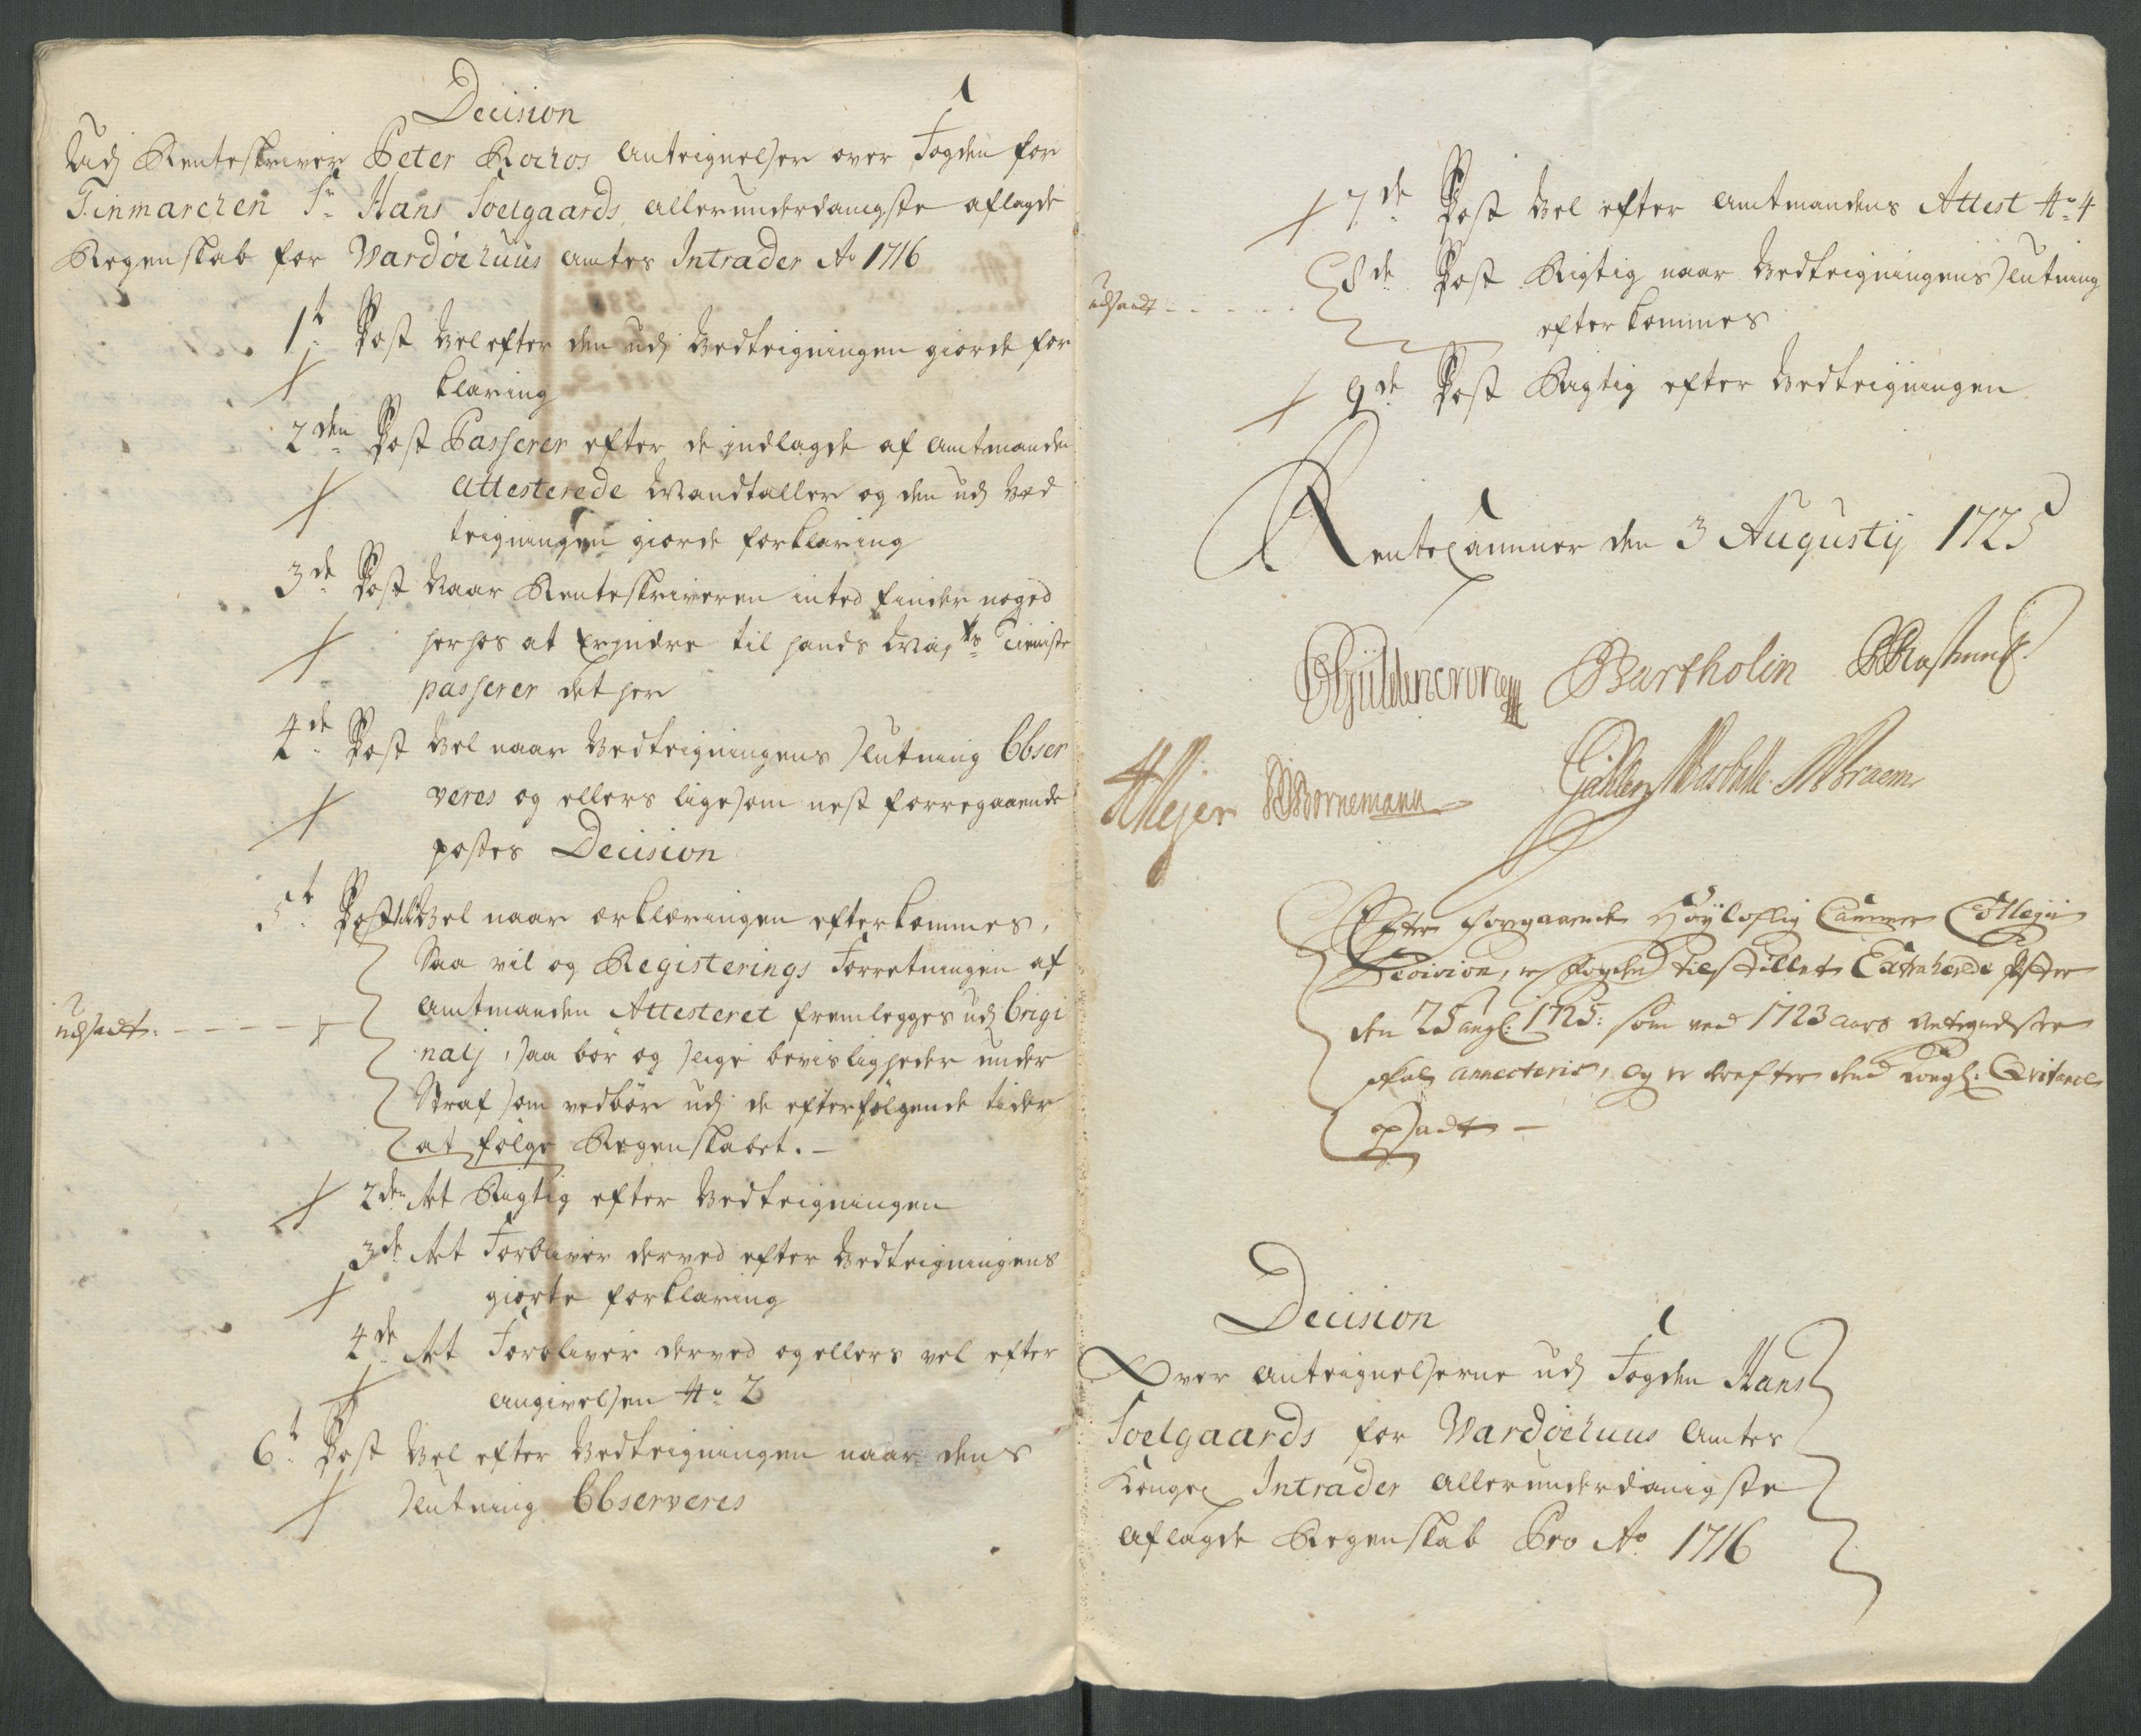 Decision
Udj Renteskriver Peter Kochos Anteignelser over Fogden for
Finmarchen Sr. Hans Soelgaards, allerunderdanigste aflagde
Regenskab for Wardöehuus Amtes Intrader Ao 1716
1t Post Vel efter den udj Bedteigningen giorde for
klaring
2den Post Passerer efter de indlagde af Amtmanden
Attesterede Mandtaller og den udj Bed
teigningen giorde forklaring
3de Post Naar Renteskriveren inted finder noged
herhos at Erindre til hands Mayts Tieniste
passerer det her
4de Post Vel naar Bedteigningens slutning Obser
veres og ellers ligesom nest forregaaende
postes Decision
5t Post Vel naar erklæringen efterkommes,
Saa vil og Registerings Forretningen af
Amtmanden Attesteret fremlegges udj Origi
nalj, saa bör og slige bevisligheder under
Straf som vedbör udj de efterfölgende tider
at fölge Regenskabet. –
udsadt.
2den Art Rigtig efter Bedteigningen
3de Art Forbliver derved efter Bedteigningens
giorte forklaring
4de Art Forbliver derved og ellers vel efter
Angivelsen No 2
6t Post Vel efter Bedteigningen naar dens
slutning Observeres
7de Post Vel efter Amtmandens Attest No 4
8de Post Rigtig naar Bedteigningens slutning
efterkommes
udsadt
9de Post Rigtig efter Bedteigningen
Rentecammer den 3 Augustij 1725
Güldencrone Bartholin
Meyer Bornemann Braem
Efter forregaaende Höyloflig Cammer Collegii
Decision, er Fogden tilstillet Extraherede Poster
den 25 1725: som ved 1723 aars Antegnelser
skal annecteris, og er derefter den Kongl: Qvitance
–
Decision
Over Anteignelserne udj Fogden Hans
Soelgaards for Wardöehuus Amtes
Konge Intrader allerunderdanigste
aflagde Regenskab Pro Ao 1716